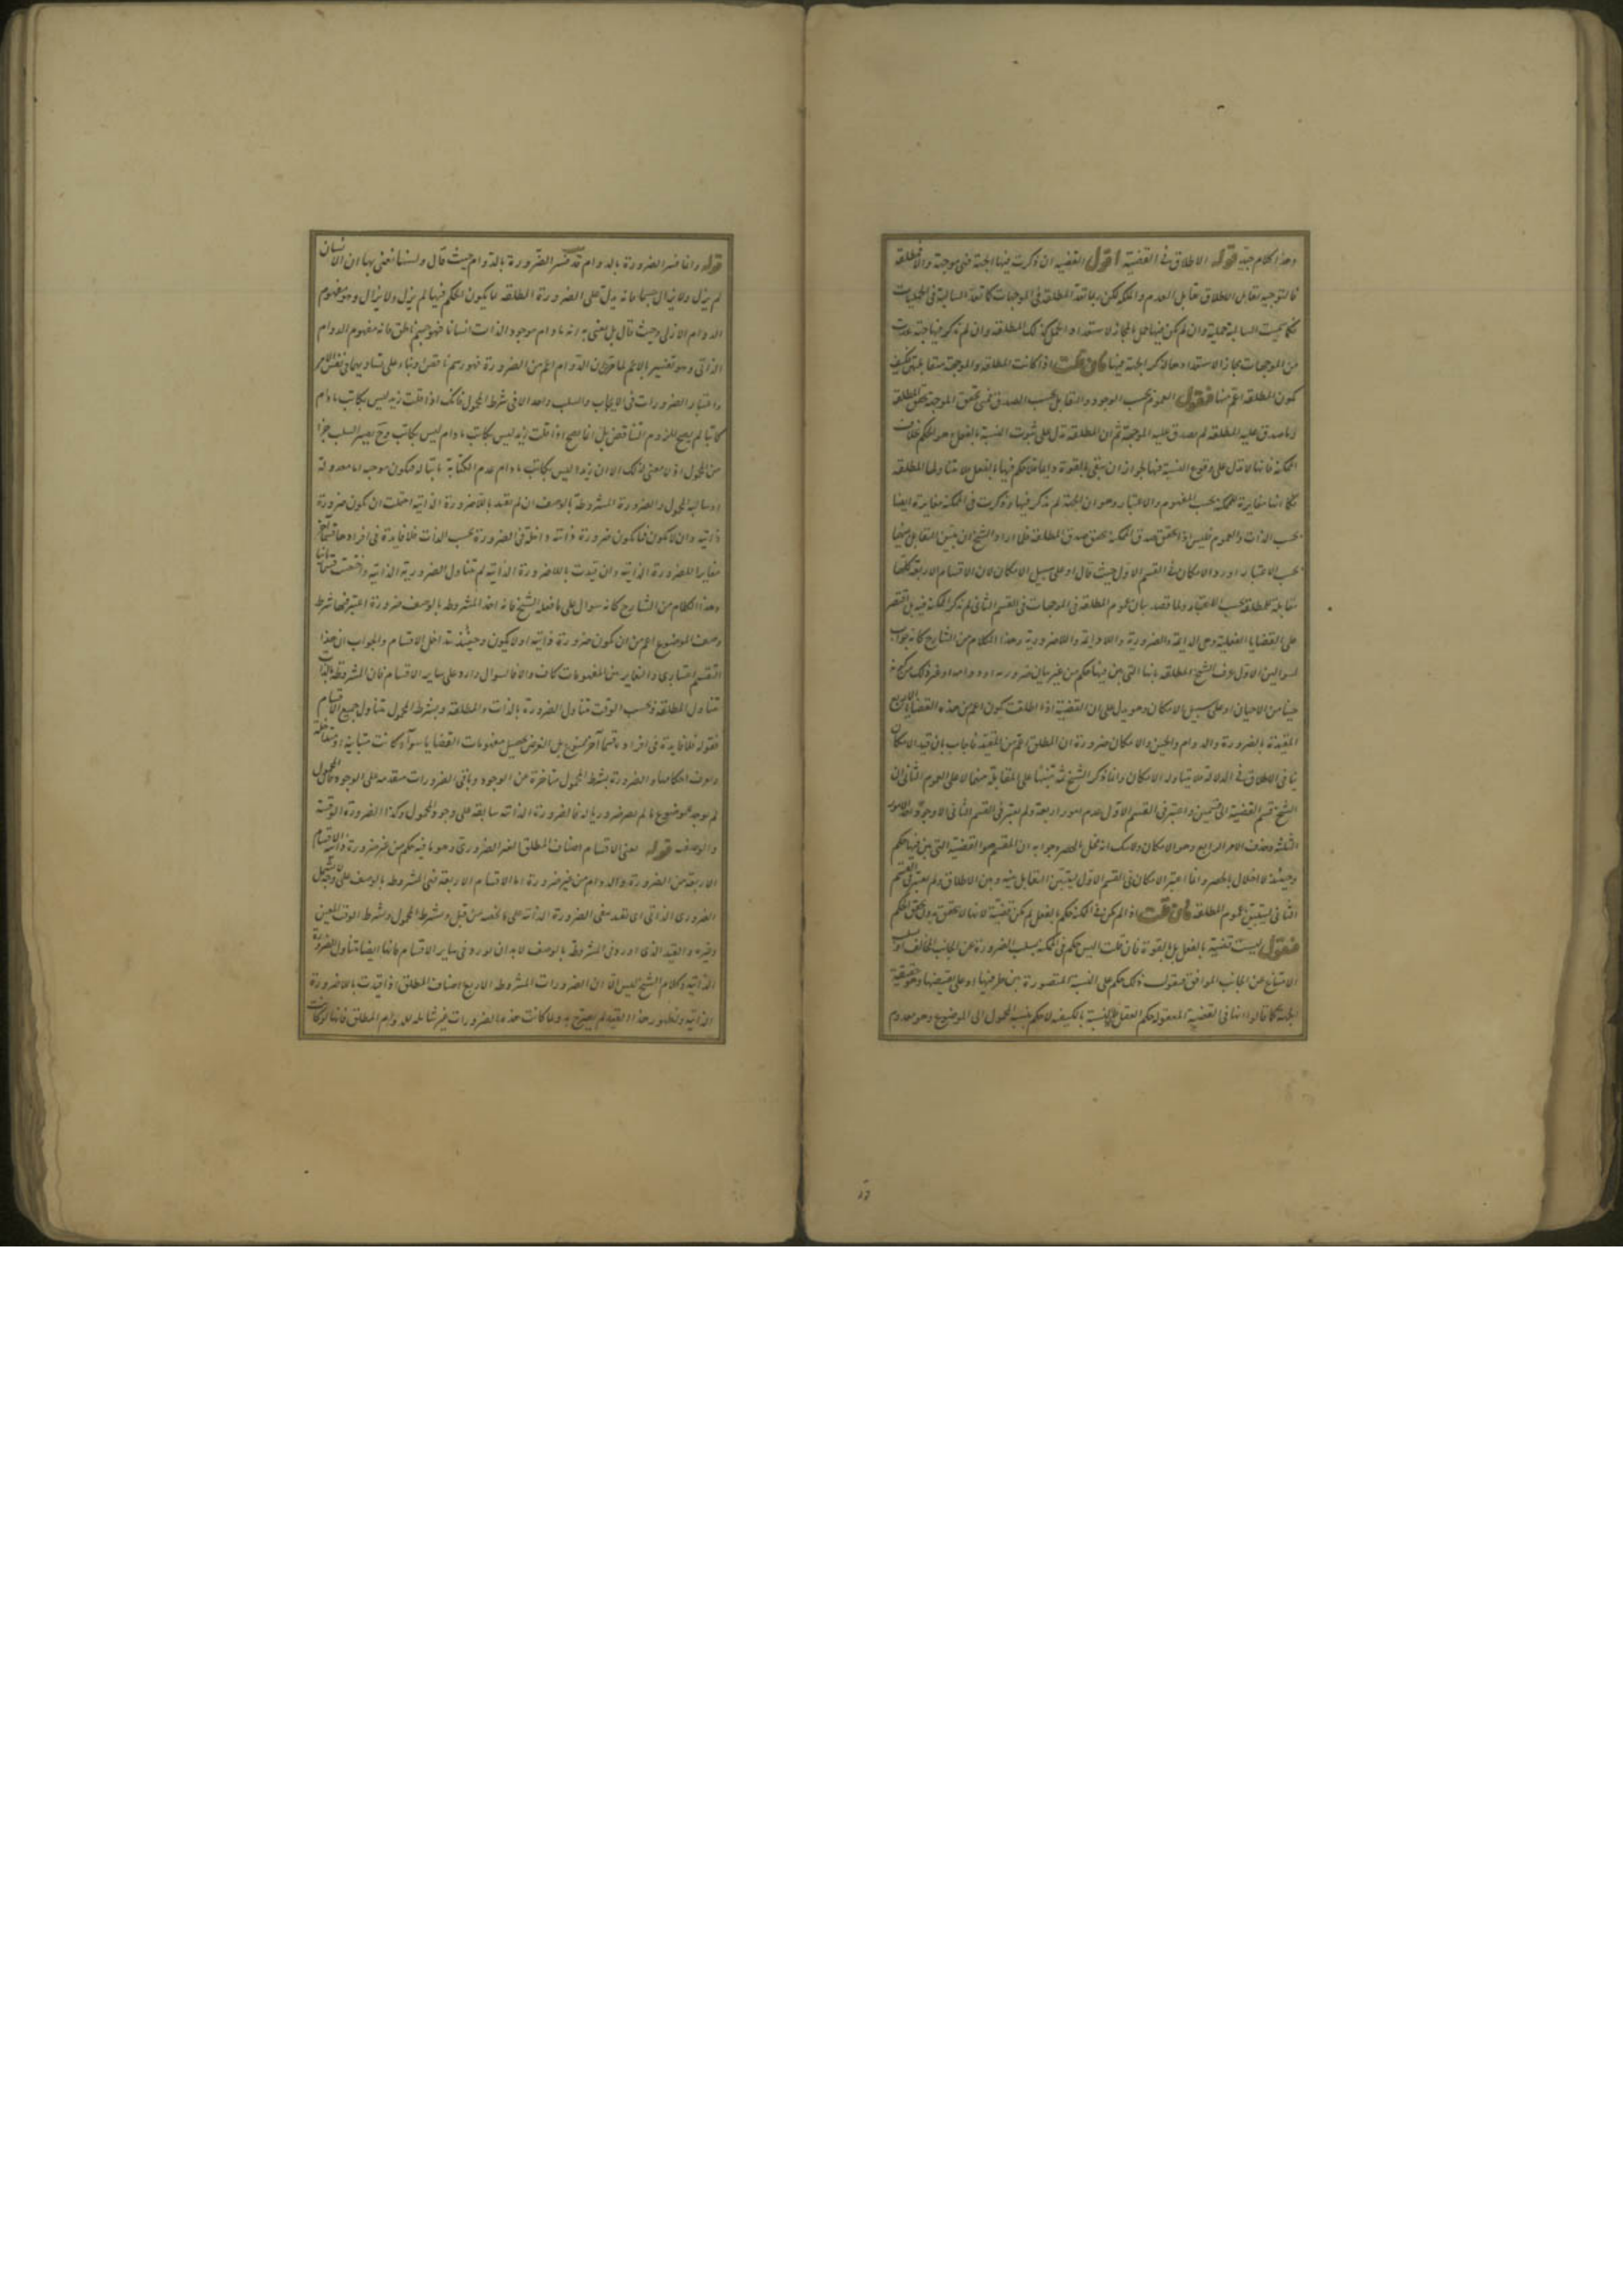 وهذا كلام جيد قوله الاطلاق في القضية اقول القضية ان ذكرت فيها الجهة فهى موجهة والا فمطلقة
فالتوجيه يقابل الاطلاق تقابل العدم والملكة لكن ربما تعد المطلقة فى الموجهات كما تعد السالبة فى الحمليات
فكما سميت السالبة حملية وان لم يكن فيها حمل بل مجازا لاستعداد الحمل كذلك المطلقة وان لم تذكر فيها جهة عدت
من الموجهات مجازا لاستعدادها لذكر الجهة فيها فان قلت اذا كانت المطلقة والموجهة متقابلتين فكيف
تكون المطلقة اعم منها فنقول العموم بحسب الوجود والتقابل بحسب الصدق فمتى تحقق الموجهة تحقق المطلقة
وما صدق عليه المطلقة لم يصدق عليه الموجهة ثم ان المطلقة تدل على ثبوت النسبة بالفعل وهو الحكم بخلاف
الممكنة فانها لا تدل على وقوع النسبة فيها لجواز ان يبقى بالقوة دايما فلا حكم فيها بالفعل فلا تتناولها المطلقة
فكما انها مغايرة للممكنة بحسب المفهوم والاعتبار وهو ان الجهة لم تذكر فيها وذكرت فى الممكنة مغايرة ايضا
بحسب الذات والعموم فليس اذا تحقق صدق الممكنة تحقق صدق المطلقة فلما اراد الشيخ ان يبين التقابل بينها
بحسب الاعتبار اورد الامكان في القسم الاول حيث قال او على سبيل الامكان لان الاقسام الاربعة كلها
مقابلة للمطلقة بحسب الاعتبار ولما قصد بيان عموم المطلقة فى الموجهات فى القسم الثانى لم يذكر الممكنة فيه بل اقتصر
على القضايا الفعلية وهى الدايمة والضرورية واللادايمة واللاضرورية وهذا الكلام من الشارح كانه جواب
لسوالين الاول عرف الشيخ المطلقة بانها التى بين فيها حكم من غير بيان ضرورته او دوامه او غير ذلك من كونه
حينا من الاحيان او على سبيل الامكان وهو يدل على ان القضية اذا اطلقت يكون اعم من هذه القضايا الاربع
المقيدة بالضرورة والدوام والحين والامكان ضرورة ان المطلق اعم من المقيد فاجاب بان قيد الامكان
ينافى الاطلاق في الدلالة فلا يتناوله الامكان وانما ذكر الشيخ ثمه تنبيها على المقابلة بينهما لا على العموم الثانى ان
الشيخ قسم القضية الى قسمين واعتبر فى القسم الاول عدم امور اربعة ولم يعتبر فى القسم الثانى الا وجود احد الامور
الثلثة وحذف الامر الرابع وهو الامكان ولا شك انه مخل بالحصر وجوابه ان المقسم هو القضية التى بين فيها حكم
وحينئذ لا اخلال بالحصر وانما اعتبر الامكان فى القسم الاول ليتبين التقابل بينه وبين الاطلاق ولم يعتبر فى القسم
الثانى ليتبين عموم المطلقة فان قلت اذا لم يكن في الممكنة حكم بالفعل لم يكن قضية لانها لا تتحقق بدون تحقق الحكم
فنقول ليست قضية بالفعل بل بالقوة فان قلت اليس حكم فى الممكنة بسلب الضرورة عن الجانب المخالف او سلب
الامتناع عن الجانب الموافق فنقول ذلك حكم على النسبة المتصورة بين طرفيها او على نقيضها وهو حقيقة
الجهة كما قالوا انها فى القضية المعقولة حكم العقل على النسبة بالكيفية لا حكم بنسبة المحمول الى الموضوع وهو معدوم
قوله وانما فسر الضرورة بالدوام قد فسر الضرورة بالدوام حيث قال ولسنا نعنى بها ان الانسان
لم يزل ولا يزال جسما فانه يدل على الضرورة المطلقة ما يكون الحكم فيها لم يزل ولا يزال وهو مفهوم
الدوام الازلى وحيث قال بل نعنى به انه مادام موجود الذات انسانا فهو جسم ناطق فانه مفهوم الدوام
الذاتى وهو تفسير بالاعم لما عرفت ان الدوام اعم من الضرورة فهو رسم ناقص او بناء على تساويهما فى نفس الامر
واعتبار الضرورات فى الايجاب والسلب واحد الا فى شرط المحمول فانك اذا قلت زيد ليس بكاتب مادام
كاتبا لم يصح للزوم التناقض بل انما يصح اذا قلت زيد ليس بكاتب مادام ليس بكاتب وح يصير السلب جزءا
من المحمول اذ لا معنى لذلك الا ان زيدا ليس بكاتب مادام عدم الكتابة ثابتا له فيكون موجبه اما معدولة
او سالبة المحمول والضرورة المشروطة بالوصف ان لم تقيد باللاضرورة الذاتية احتملت ان يكون ضرورة
ذاتية وان لا يكون فما يكون ضرورة ذاتية داخلة فى الضرورة بحسب الذات فلا فايدة فى افرادها قسما آخر
مغايرا للضرورة الذاتية وان قيدت باللاضرورة الذاتية لم تتناول الضرورية الذاتية واختصت قسما ثانيا
وهذا الكلام من الشارح كانه سوال على ما فعله الشيخ فانه اخذ المشروطة بالوصف ضرورة اعتبر فيها شرط
وصف الموضوع اعم من ان يكون ضرورة ذاتية او لا يكون وحينئذ يتداخل الاقسام والجواب ان هذا
التقسيم اعتبارى والتغاير بين المفهومات كاف والا فالسوال وارد على ساير الاقسام فان المشروطة بالذات
تتناول المطلقة وبحسب الوقت تتناول الضرورة بالذات والمطلقة وبشرط المحمول تتناول جميع الاقسام
فقوله فلا فايدة فى افراده قسما آخر ممنوع بل الغرض تحصيل مفهومات القضايا سواء كانت متباينة او متداخلة
وتعرف احكامها والضرورة بشرط المحمول متاخرة عن الوجود وباقى الضرورات متقدمة على الوجود فالمحمول
لم يوجد للموضوع ما لم يصر ضروريا له فالضرورة الذاتية سابقة على وجود المحمول وكذا الضرورة الوقتية
والوصفية قوله يعنى الاقسام اصناف المطلق الغير الضرورى وهو ما فيه حكم من غير ضرورة ذاتية الاقسام
الاربعة من الضرورة والدوام من غير ضرورة اما الاقسام الاربعة فهى المشروطة بالوصف على وجه لا يشمل
الضرورى الذاتى اى تقيد بنفى الضرورة الذاتية على ما لخصه من قبل وبشرط المحمول وبشرط الوقت المعين
وغيره والقيد الذى اورد فى المشروطة بالوصف لابد ان يورد فى ساير الاقسام فانها ايضا تتناول الضرورة
الذاتية وكلام الشيخ ليس الا ان الضرورات المشروطة الاربع اصناف المطلق اذا قيدت باللاضرورة
الذاتية ولظهور هذا القيد لم يصرح به ولما كانت هذه الضرورات غير شاملة للدوام المطلق فانها لو كانت